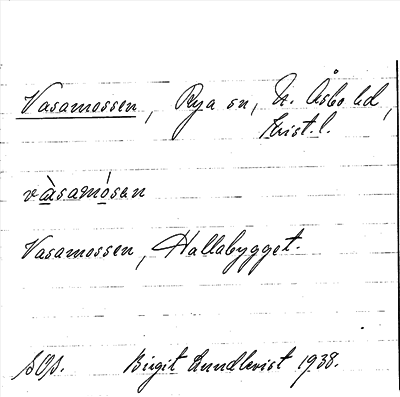 Vasamossen, Rya sn, N. Åsbo hd,
Krist. l.
vàsamósen
Vasamossen, Hallabygget.
Birgit Lundkvist 1938.